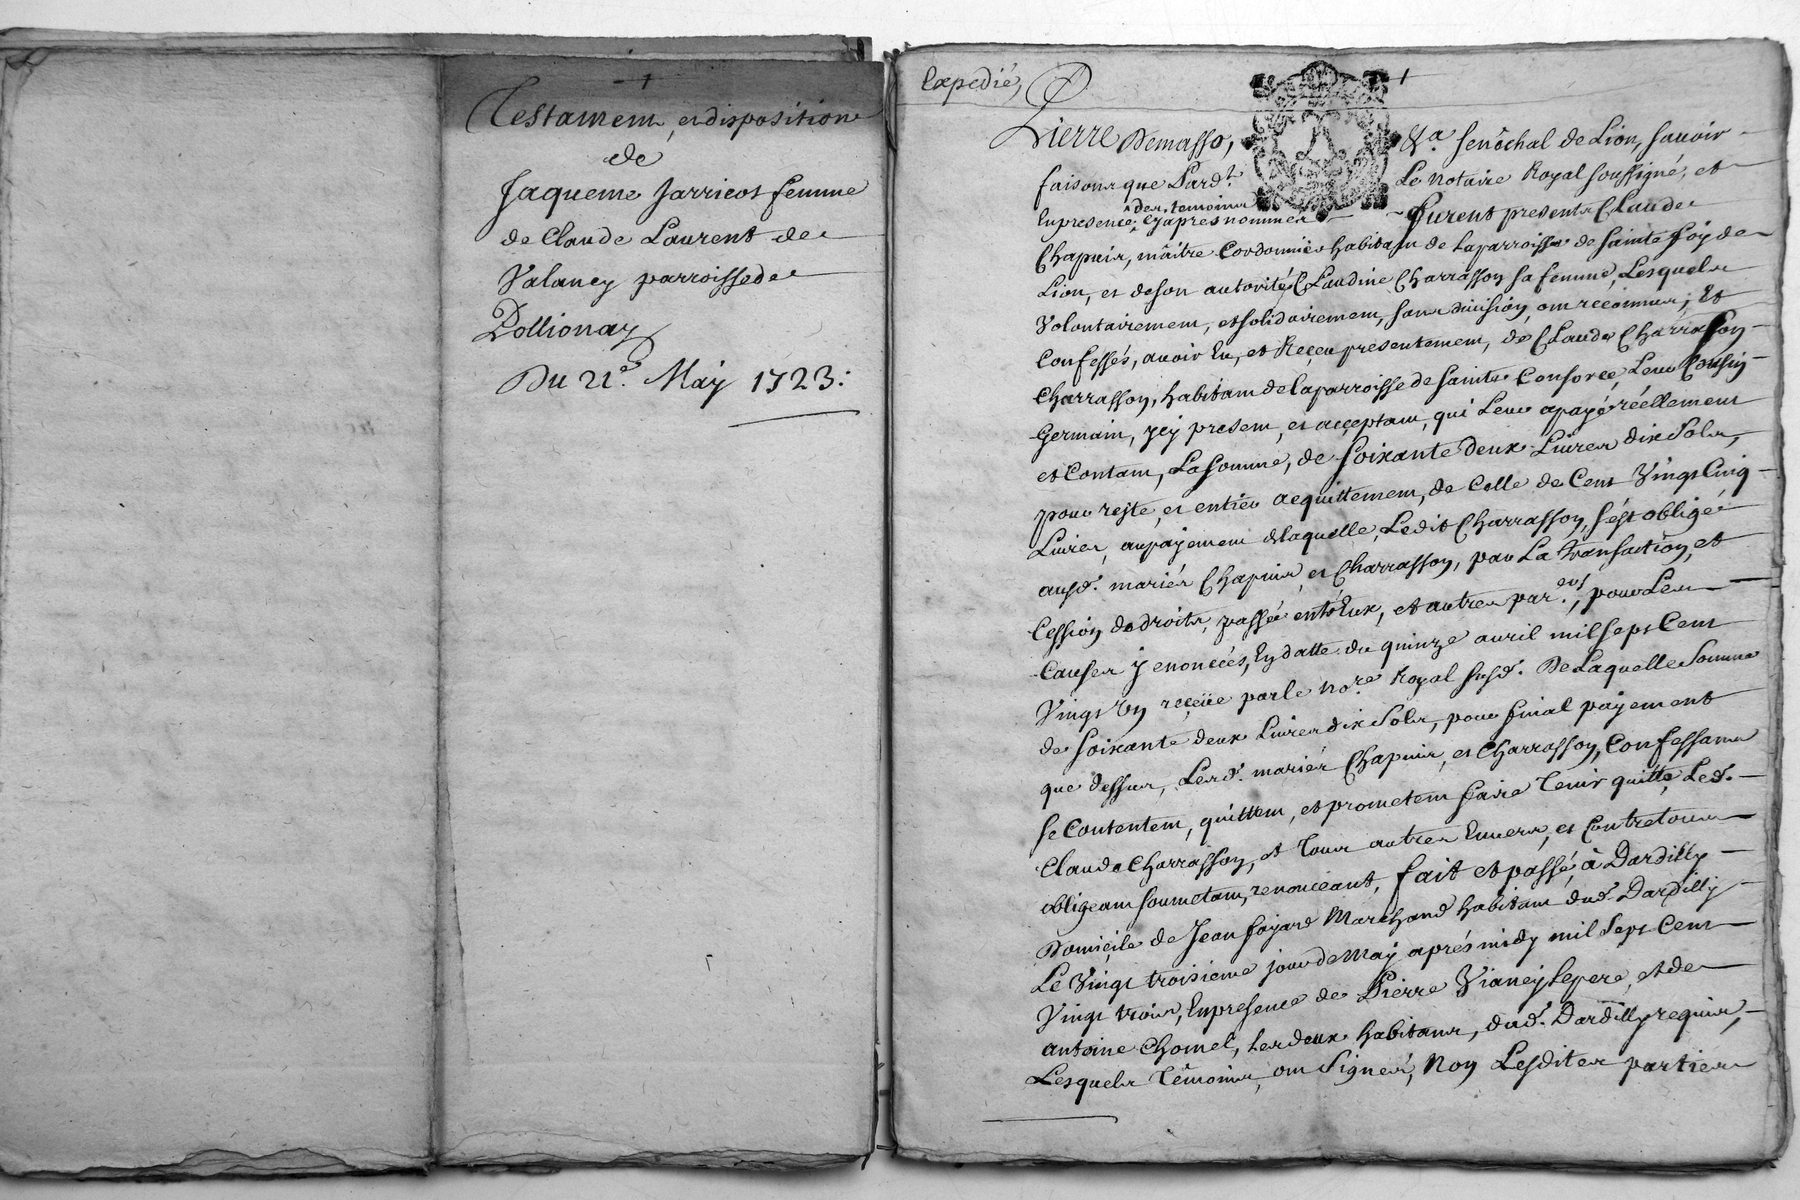 Testament, et disposition
de
Jaqueme Jarricot femme
de Claude Laurent de
Valancy parroisse de
Pollionay
Du 21e. May 1723:
Expedié,
Pierre Demasso, &a. senéchal de Lion, sauoir
faisons que Pardt. Le Notaire Royal soussigné, et
des temoins
En presence, cy apres nommes furent presents Claude
Chapuis, maître Cordonnier habitant de La parroisse de Sainte foy de
Lion, et de son autorité Claudine Charrasson sa femme, Lesquels
Volontairement, et solidairement, sans diuision, ont reconnus, Et
Confessés, auoir Eu, et Reçeu presentement, de Claude Charrasson
Charrasson, habitant de la parroisse de Sainte Consorce, Leur Cousin
Germain, ycy present, et acceptant, qui Leur a payé réellement
et Contant, La Somme, de Soixante deux Liures dix Sols,
pour reste, et entier acquittement, de Celle de Cent Vingt Cinq
Liures, au payement de laquelle, Ledit Charrasson, s'est obligé
ausd. mariés Chapuis, et Charrasson, par La transaction, et
Cession de droits, passée entr'Eux, et autres par.es, pour Les
Causes y enoncées, En datte du quinze auril mil sept Cent
Vingt Un reçeüe par le no.re Royal susd. De Laquelle Somme
de soixante deux Liures dix Sols, pour final payement
que dessus, Lesd. mariés Chapuis, et Charrasson, Confessant
se Contentent, quittent, et prometent faire Tenir quitte, Led.
Claude Charrasson, et Tous autres Enuers, et Contre tous
obligeant soumetant, renonceant, fait et passé, à Dardilly
Domicile de Jean fayard Marchand habitant dud. Dardilly
Le Vingt troisieme jour de May aprés midy mil Sept Cent
Vingt trois, En presence de Pierre Vianey Le pere, et de
antoine Chomel, Les deux habitans, dud. Dardilly requis,
Lesquels Témoins, ont Signés, Non Lesdites parties